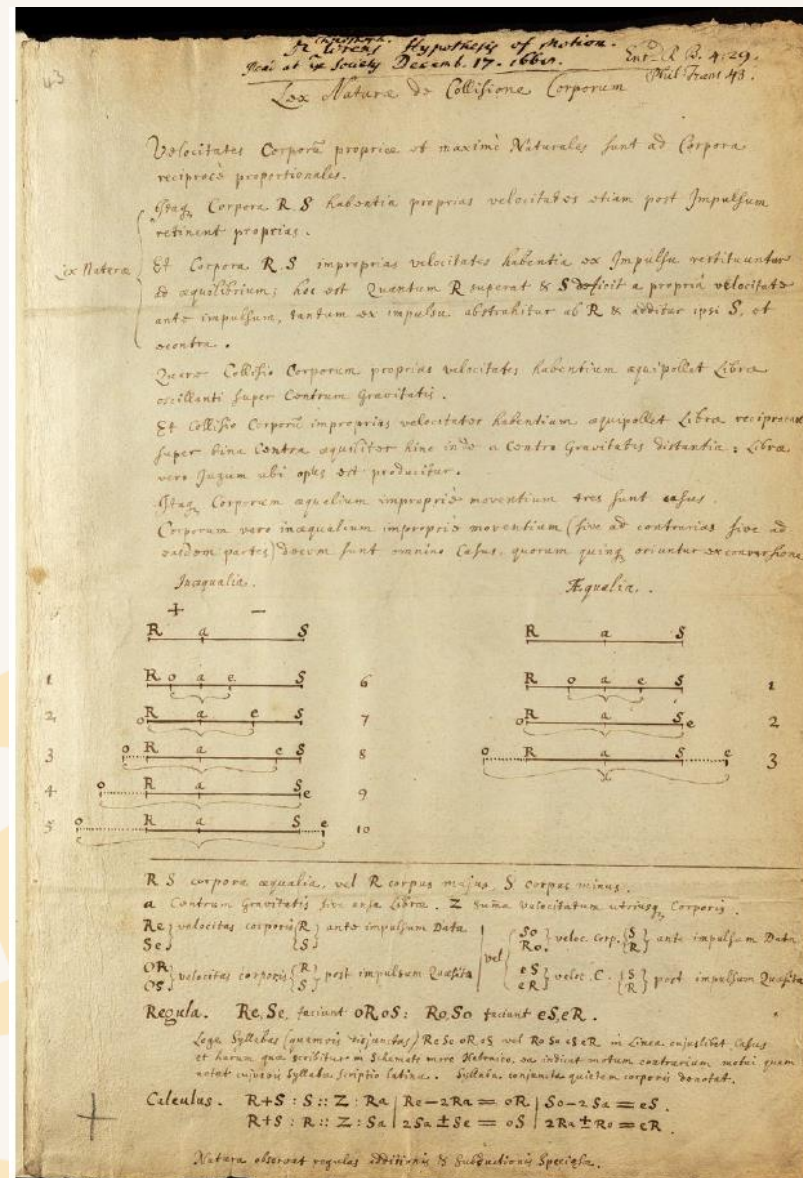 43
Dr Christoph. Wrens Hypothesis of Motion.
Read at ye Society Decemb. 17. 1668.
Entd. R B. 4: 29.
Phil. Trans 43.
Lex Naturæ de Collisione Corporum
Velocitates Corporū propriæ et maximè Naturales sunt ad Corpora
reciprocè proportionales.
Itaq Corpora R. S habentia proprias velocitates etiam post Impulsum
retinent proprias.
Lex Naturæ
Et Corpora R. S improprias velocitates habentia ex Impulsu restituuntur
ad æquilibrium; hoc est Quantum R superat & S deficit a propriâ velocitate
ante impulsum, tantum ex impulsu abstrahitur ab R & additur ipsi S, et
econtra.
Quare Collisio Corporum proprias velocitates habentium æquipollet Libræ
oscillanti super Centrum Gravitatis.
Et Collisio Corporū improprias velocitates habentium æquipollet Libræ reciprocanti
super bina Centra æqualiter hinc inde a Centro Gravitatis distantia: Libræ
vero Jugum ubi opus est producitur.
Itaq Corporum æqualium impropriè moventium tres sunt casus.
Corporum vero inæqualium impropriè moventium (sive ad contrarias sive ad
easdem partes) decem sunt omnino Casus. quorum quinq oriuntur ex conversione
Inæqualia.
Æqualia.
+ −
R a S
R a S
1 R o a e S 6
R o a e S 1
2 o R a e S 7
o R a S e 2
3 o R a e S 8
o R a S e 3
4 o R a S e 9
5 o R a S e 10
R S corpora æqualia, vel R corpus majus, S corpus minus.
a Centrum Gravitatis sive ansa Libræ. Z Suma velocitatum utriusq Corporis.
Re Se } velocitas corporis { R S } ante impulsum Data | vel { So Ro } veloc. corp. { S R } ante impulsum Data
oR oS } velocitas corporis { R S } post impulsum Quæsita | { eS eR } veloc. C. { S R } post impulsum Quæsita
Regula. Re, Se, faciunt oR oS: Ro, So faciunt eS, eR.
Lege Syllabas (quamvis disjunctas) Re Se oR oS vel Ro So eS eR in Linea cujuslibet Casus
et harum quæ scribitur in Schemate more Hebraico, ea indicat motum contrarium motui quem
notat cujusvis Syllabæ scriptio latina. Syllaba conjuncta quietem corporis denotat.
Calculus. R+S : S :: Z : Ra | Re−2Ra = oR | So−2Sa = eS.
R+S : R :: Z : Sa | 2Sa ± Se = oS | 2Ra ± Ro = eR.
Natura observat regulas additionis & Subductionis Speciosæ.